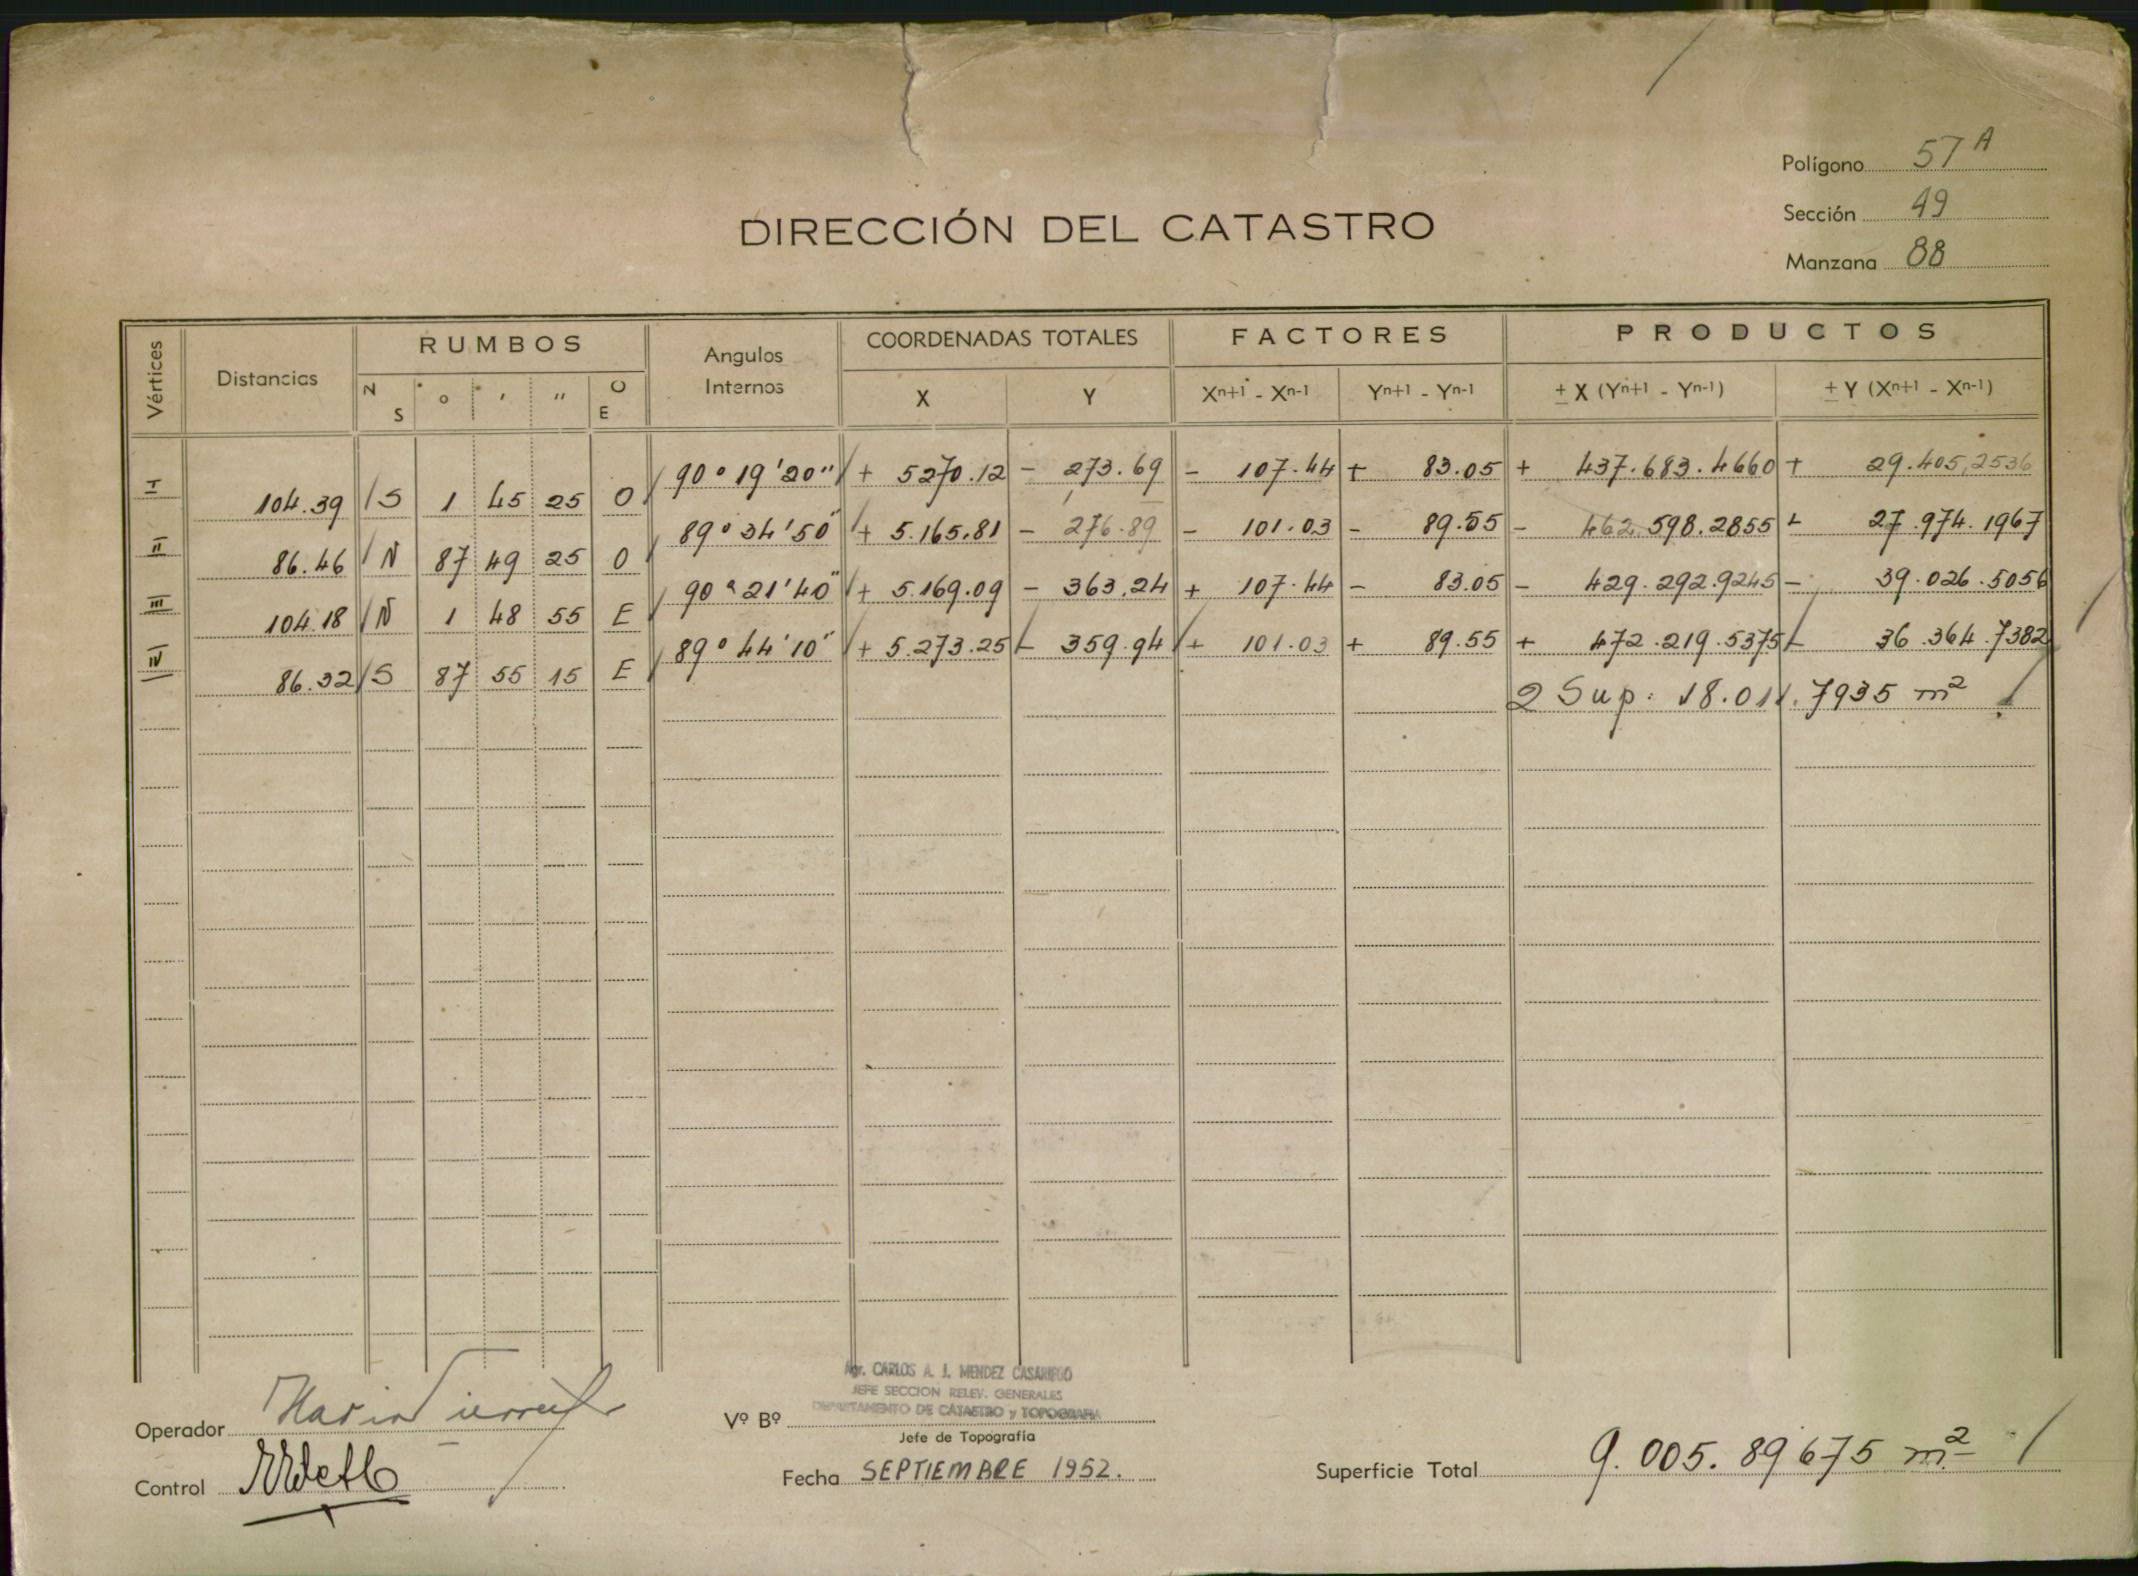 Polígono 57 A
Sección 49
Manzana 88
DIRECCIÓN DEL CATASTRO
Vértices Distancias RUMBOS Angulos Internos COORDENADAS TOTALES FACTORES PRODUCTOS
N S ° ' " O E X Y Xn+1 - Xn-1 Yn+1 - Yn-1 ± X (Yn+1 - Yn-1) ± Y (Xn+1 - Xn-1)
I 104.39 S 1 45 25 O 90° 19' 20" + 5270.12 - 273.69 - 107.44 + 83.05 + 437.683.4660 + 29.405,2536
II 86.46 N 87 49 25 O 89° 34' 50" + 5.165.81 - 276.89 - 101.03 - 89.55 - 462.598.2855 + 27.974.1967
III 104.18 N 1 48 55 E 90° 21' 40" + 5.169.09 - 363.24 + 107.44 - 83.05 - 429.292.9245 - 39.026.5056
IV 86.32 S 87 55 15 E 89° 44' 10" + 5.273.25 - 359.94 + 101.03 + 89.55 + 472.219.5375 - 36.364.7382
2 Sup: 18.011.7935 m2
Agr. CARLOS A. J. MENDEZ CASARIEGO
JEFE SECCION RELEV. GENERALES
DEPARTAMENTO DE CATASTRO y TOPOGRAFIA
Operador
Vº Bº
Jefe de Topografía
Control
Fecha SEPTIEMBRE 1952.
Superficie Total 9.005.89675 m2